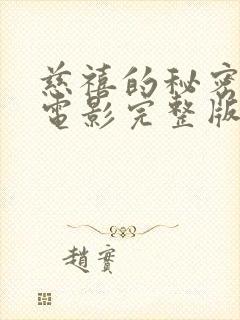 慈禧的秘密
電影完整版
趙實